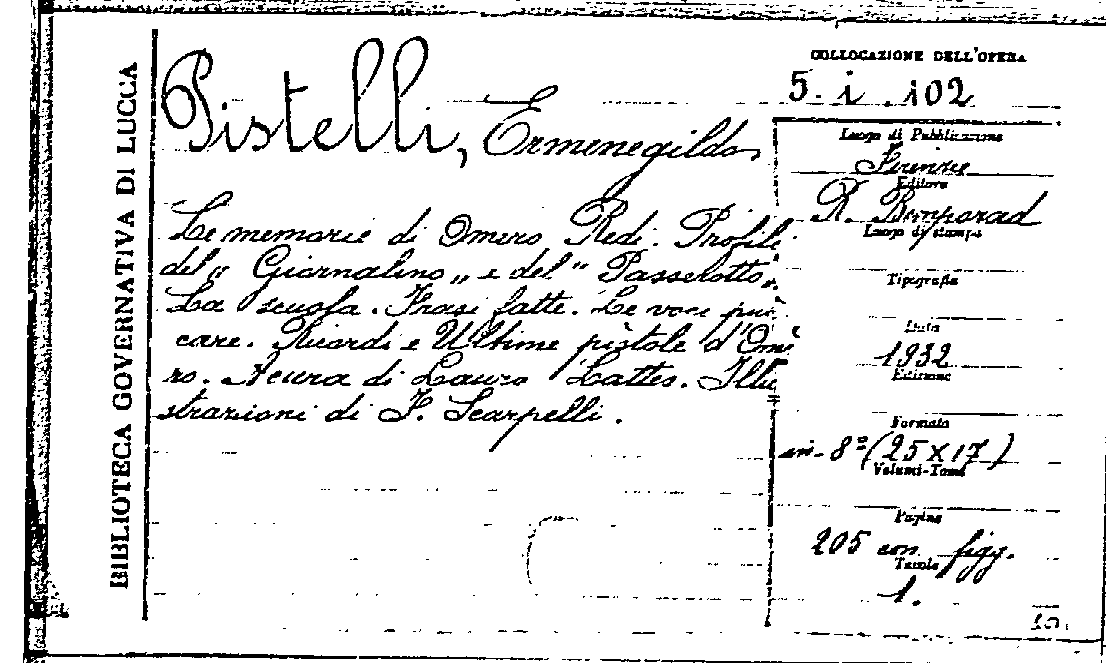 BIBLIOTECA GOVERNATIVA DI LUCCA
Pistelli, Ermenegildo,
Le memorie di Omero Redi. Profili
del „ Giornalino „ e del " Passerotto„.
La scuola. Frasi fatte. Le voci più
care. Ricordi e Ultime pistole d'Ome
ro. A cura di Lauro Lattes. Illu
strazioni di F. Scarpelli.
COLLOCAZIONE DELL'OPERA
5. i. 102
Luogo di Pubblicazione
Firenze
Editore
R. Bemporad
Luogo di stampa
Tipografia
Data
1932
Edizione
Formato
in-8º (25x17)
Volumi-Tomi
Pagine
205 con figg.
Tavole
1.